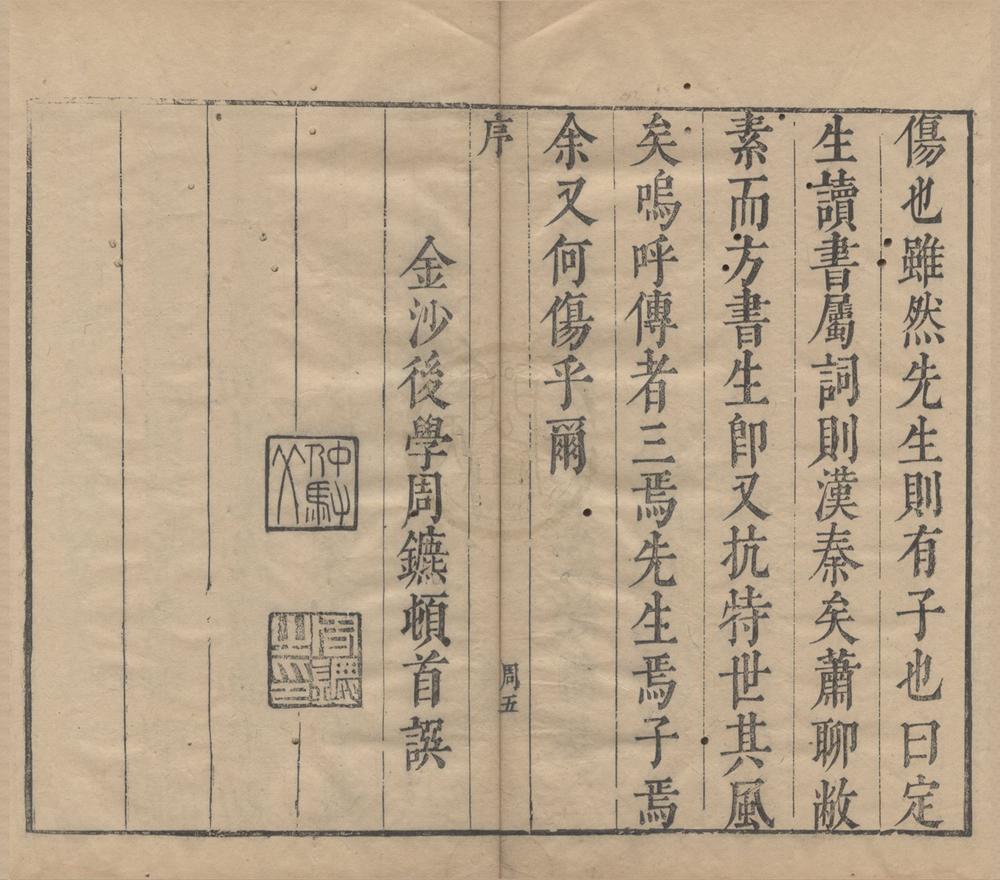 傷也雖然先生則有子也曰定
生讀書屬詞則漢秦矣蕭聊敝
素而方書生卽又抗特世其風
矣嗚呼傳者三焉先生焉子焉
余又何傷乎爾
序
周五
金沙後學周鑣頓首譔
仲馭父
周鑣之印